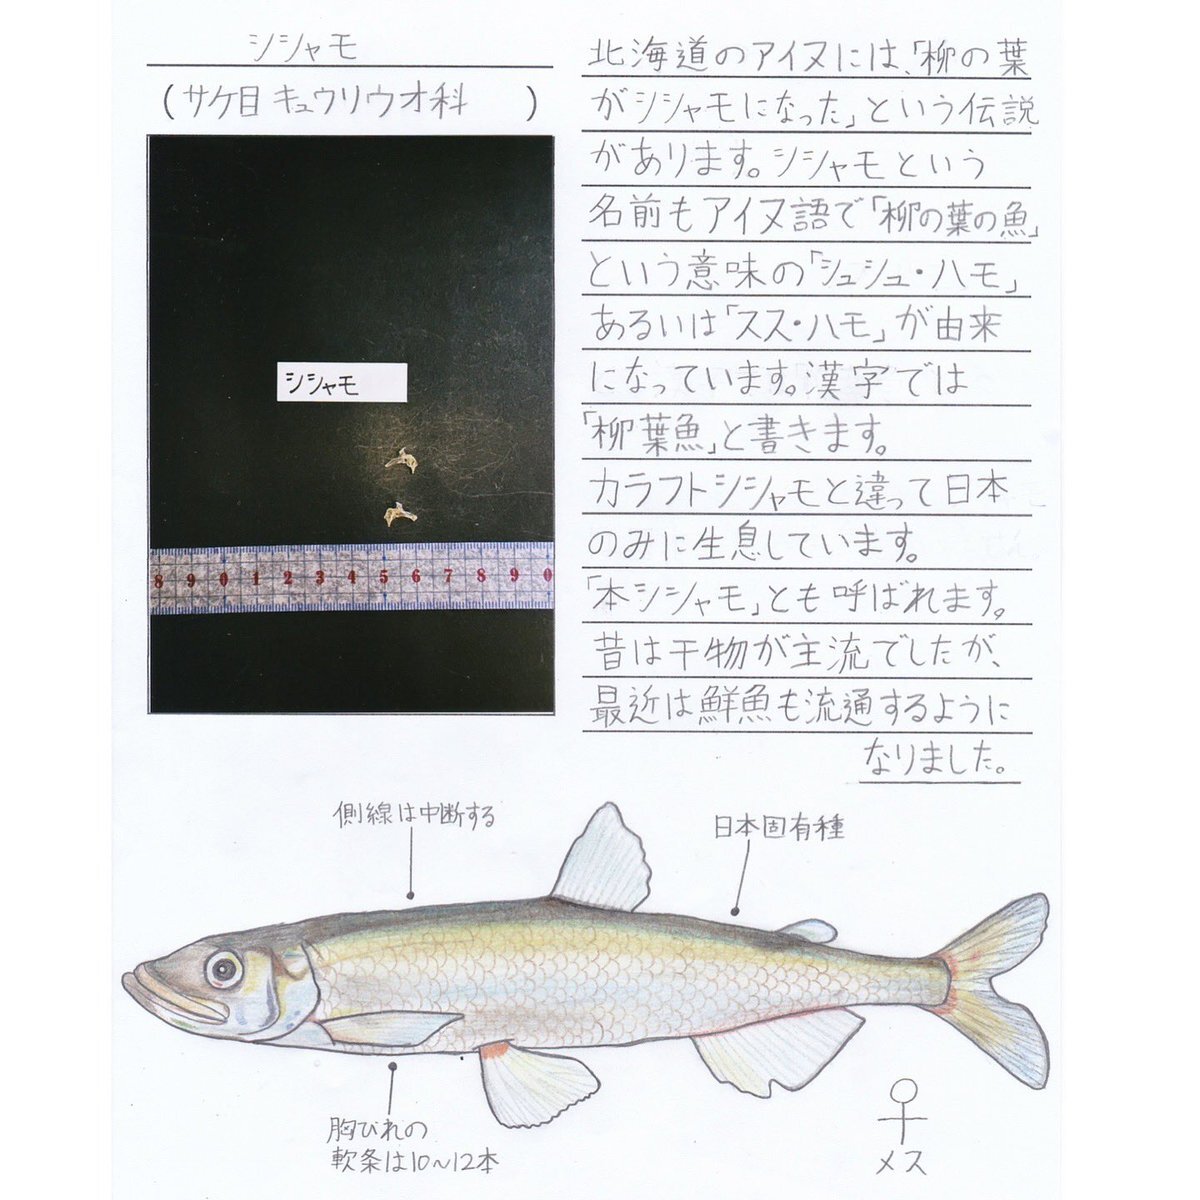 シシャモ
(サケ目 キュウリウオ科 )
シシャモ
8 9 0 1 2 3 4 5 6 7 8 9 0
北海道のアイヌには、「柳の葉
がシシャモになった」という伝説
があります。シシャモという
名前もアイヌ語で「柳の葉の魚」
という意味の「シュシュ・ハモ」
あるいは「スス・ハモ」が由来
になっています。漢字では
「柳葉魚」と書きます。
カラフトシシャモと違って日本
のみに生息しています。
「本シシャモ」とも呼ばれます。
昔は干物が主流でしたが、
最近は鮮魚も流通するように
なりました。
側線は中断する
日本固有種
胸びれの
軟条は10~12本
メス